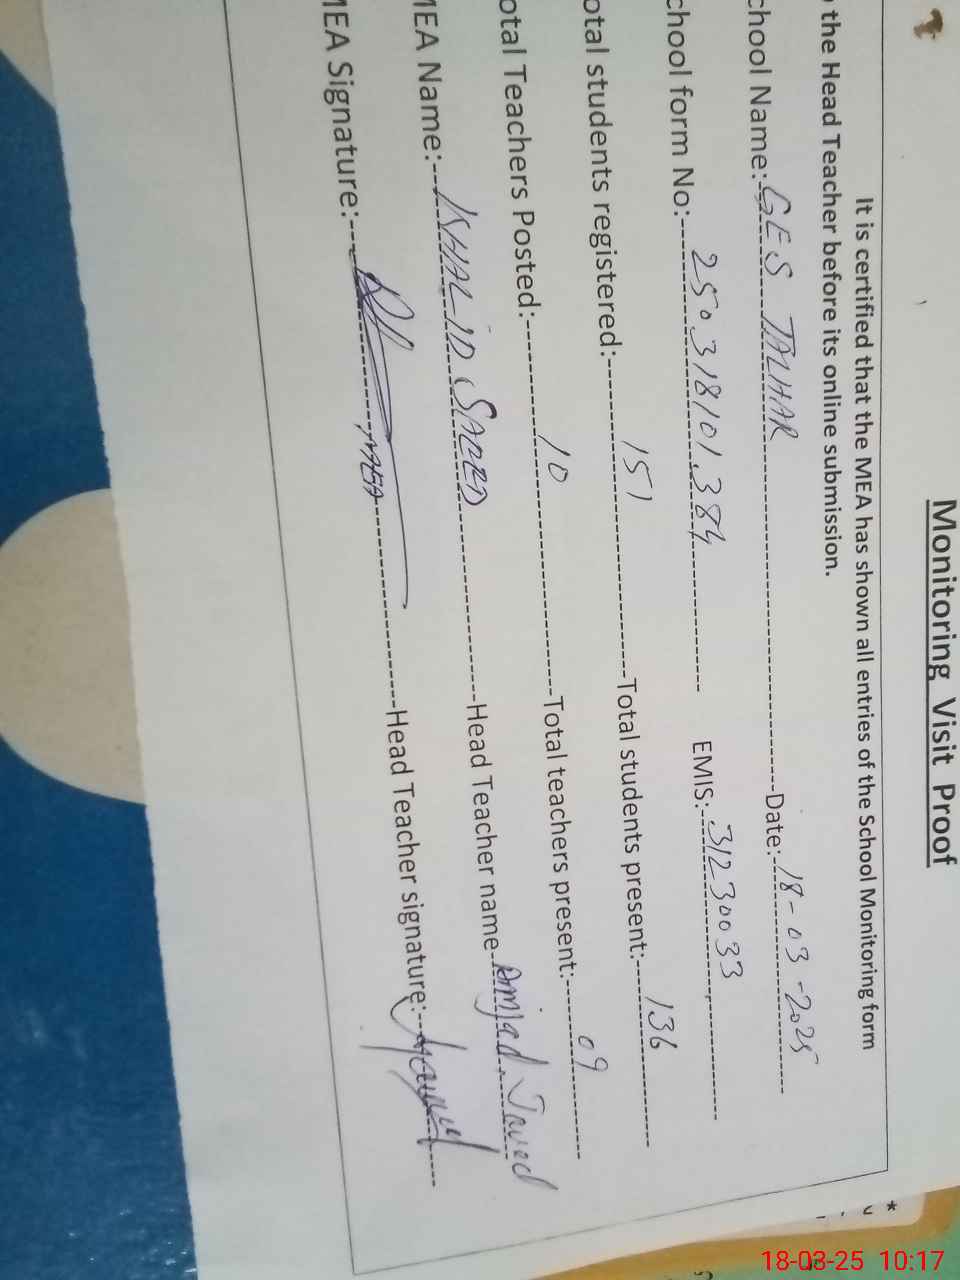 Monitoring Visit Proof
It is certified that the MEA has shown all entries of the School Monitoring form
the Head Teacher before its online submission.
chool Name:- GES TALHAR Date:- 18-03-2025
chool form No:- 250318101384 EMIS:- 31230033
otal students registered:- 151 Total students present:- 136
otal Teachers Posted:- 10 Total teachers present:- 09
MEA Name:- KHALID SAEED Head Teacher name Amjad Javed
MEA Signature:- MEA Head Teacher signature:-
18-03-25 10:17